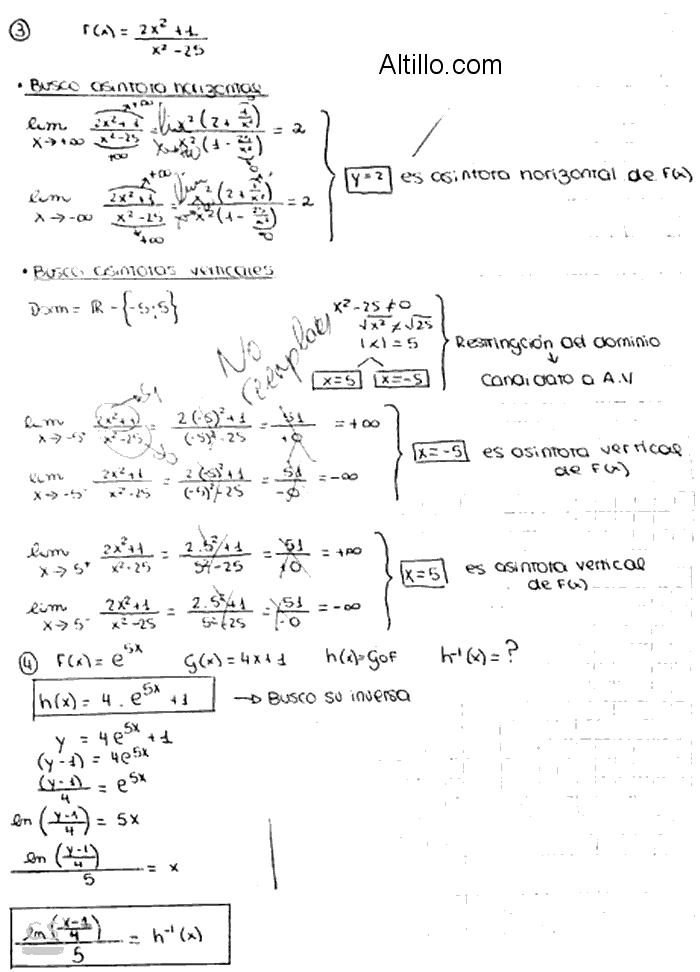 ③ F(x) = 2x² + 1 / x² - 25
Altillo.com
• Busco asíntota horizontal
lim x→+∞ 2x² + 1 / x² - 25 = lim x→+∞ x² (2 + 1/x²) / x² (1 - 25/x²) = 2
+∞
+∞
y = 2 es asíntota horizontal de F(x)
lim x→-∞ 2x² + 1 / x² - 25 = lim x→-∞ x² (2 + 1/x²) / x² (1 - 25/x²) = 2
+∞
+∞
• Busco asíntotas verticales
Dom = ℝ - {-5; 5}
x² - 25 ≠ 0
√x² ≠ √25
|x| = 5
x = 5 x = -5
Restringción del dominio
↓
Candidato a A.V
No reemplaces
lim x→-5⁺ 2x² + 1 / x² - 25 = 2(-5)² + 1 / (-5)² - 25 = 51 / +0 = +∞
51
lim x→-5⁻ 2x² + 1 / x² - 25 = 2(-5)² + 1 / (-5)² - 25 = 51 / -0 = -∞
x = -5 es asíntota vertical
de F(x)
lim x→5⁺ 2x² + 1 / x² - 25 = 2.5² + 1 / 5² - 25 = 51 / +0 = +∞
lim x→5⁻ 2x² + 1 / x² - 25 = 2.5² + 1 / 5² - 25 = 51 / -0 = -∞
x = 5 es asíntota vertical
de F(x)
④ F(x) = e^5x G(x) = 4x + 1 h(x) = GoF h⁻¹(x) = ?
h(x) = 4 . e^5x + 1 → Busco su inversa
y = 4e^5x + 1
(y - 1) = 4e^5x
(y - 1) / 4 = e^5x
ln (y - 1 / 4) = 5x
ln (y - 1 / 4) / 5 = x
ln (x - 1 / 4) / 5 = h⁻¹(x)